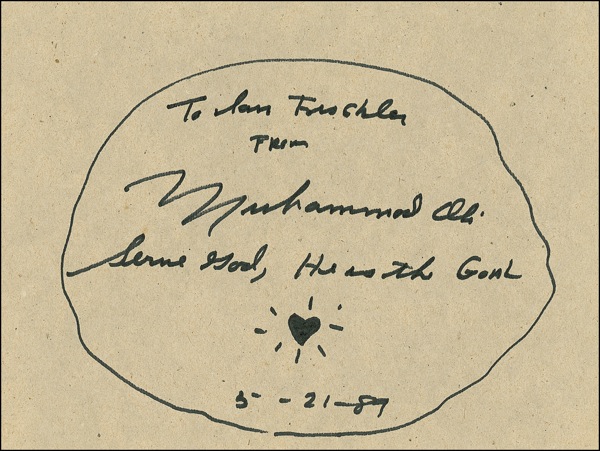 To Ian
From
Muhammad Ali
Serve God, He is the Goal
5 - 21-89